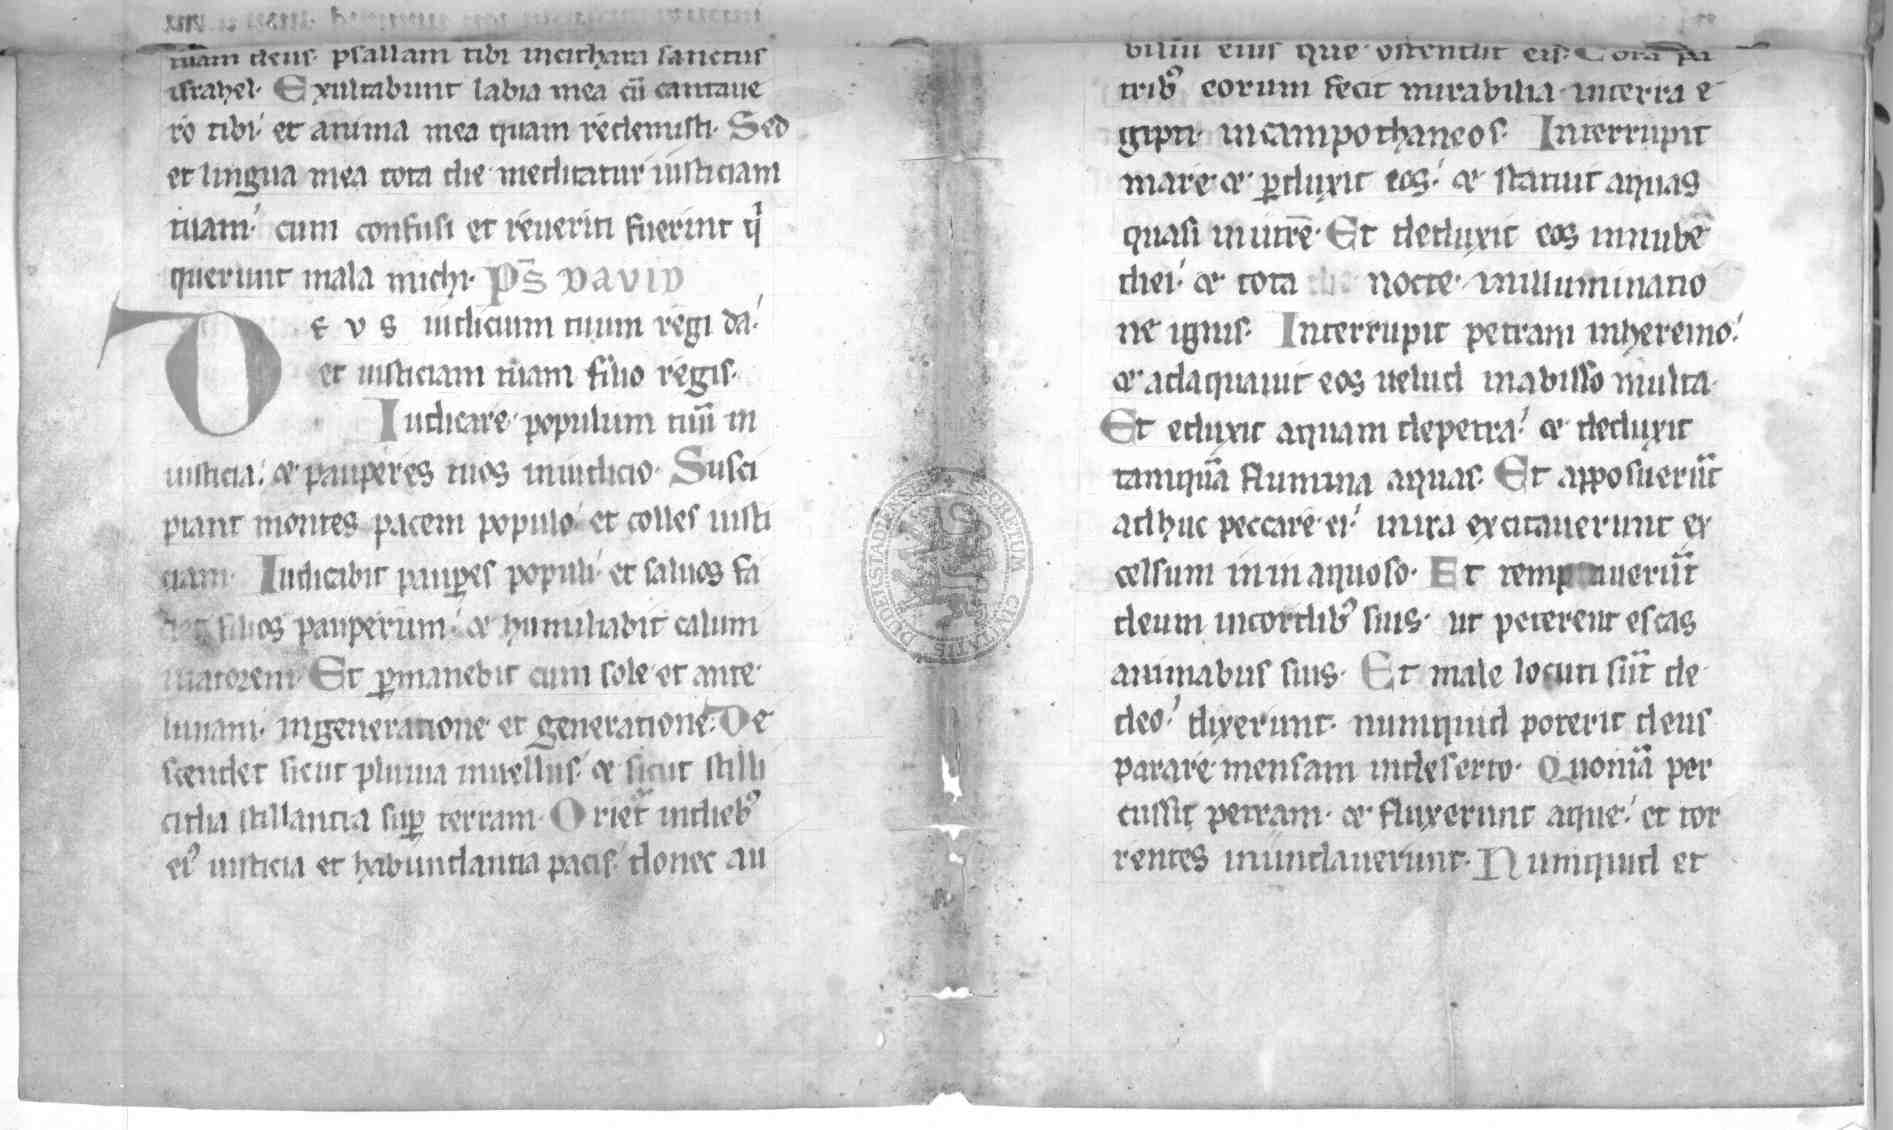 tuam deus· psallam tibi incithara sanctus
israhel· Exultabunt labia mea cū cantaue
ro tibi· et anima mea quam redemisti· Sed
et lingua mea tota die meditatur iusticiam
tuam· cum confusi et reueriti fuerint q̄
querunt mala michi· Ps̄ DAVID
DEVS iudicium tuum regi da·
et iusticiam tuam filio regis·
Iudicare populum tuū in
iusticia· & pauperes tuos iniudicio· Susci
piant montes pacem populo· et colles iusti
ciam· Iudicabit paup̱es populi· et saluos fa
ciet filios pauperum· & humiliabit calum
niatorem· Et p̱manebit cum sole· et ante
lunam· ingeneratione et generatione· De
scendet sicut pluuia inuellus· & sicut stilli
cidia stillantia sup̱ terram· Oriet᷑ indieb⁹
ei⁹ iusticia et habundantia pacis· donec au
bilium eius que ostendit eis· Corā pa
trib⁹ eorum fecit mirabilia interra e
gipti· incampo thaneos· Interrupit
mare· & p̱duxit eos· & statuit aquas
quasi inutrē· Et deduxit eos innubē
diei· & tota nocte inilluminatio
ne ignis· Interrupit petram inheremo·
& adaquauit eos uelud inabisso multa·
Et eduxit aquam depetra· & deduxit
tamquā flumina aquas· Et apposuerūt
adhuc peccare ei· inira excitauerunt ex
celsum in inaquoso· Et temptauerūt
deum incordib⁹ suis· ut peterent escas
animabus suis· Et male locuti sūt de
deo· dixerunt· numquid poterit deus
parare mensam indeserto· Quoniā per
cussit petram· & fluxerunt aque· et tor
rentes inundauerunt· Numquid et
SECRETUM CIVITATIS DUDERSTADIENSIS